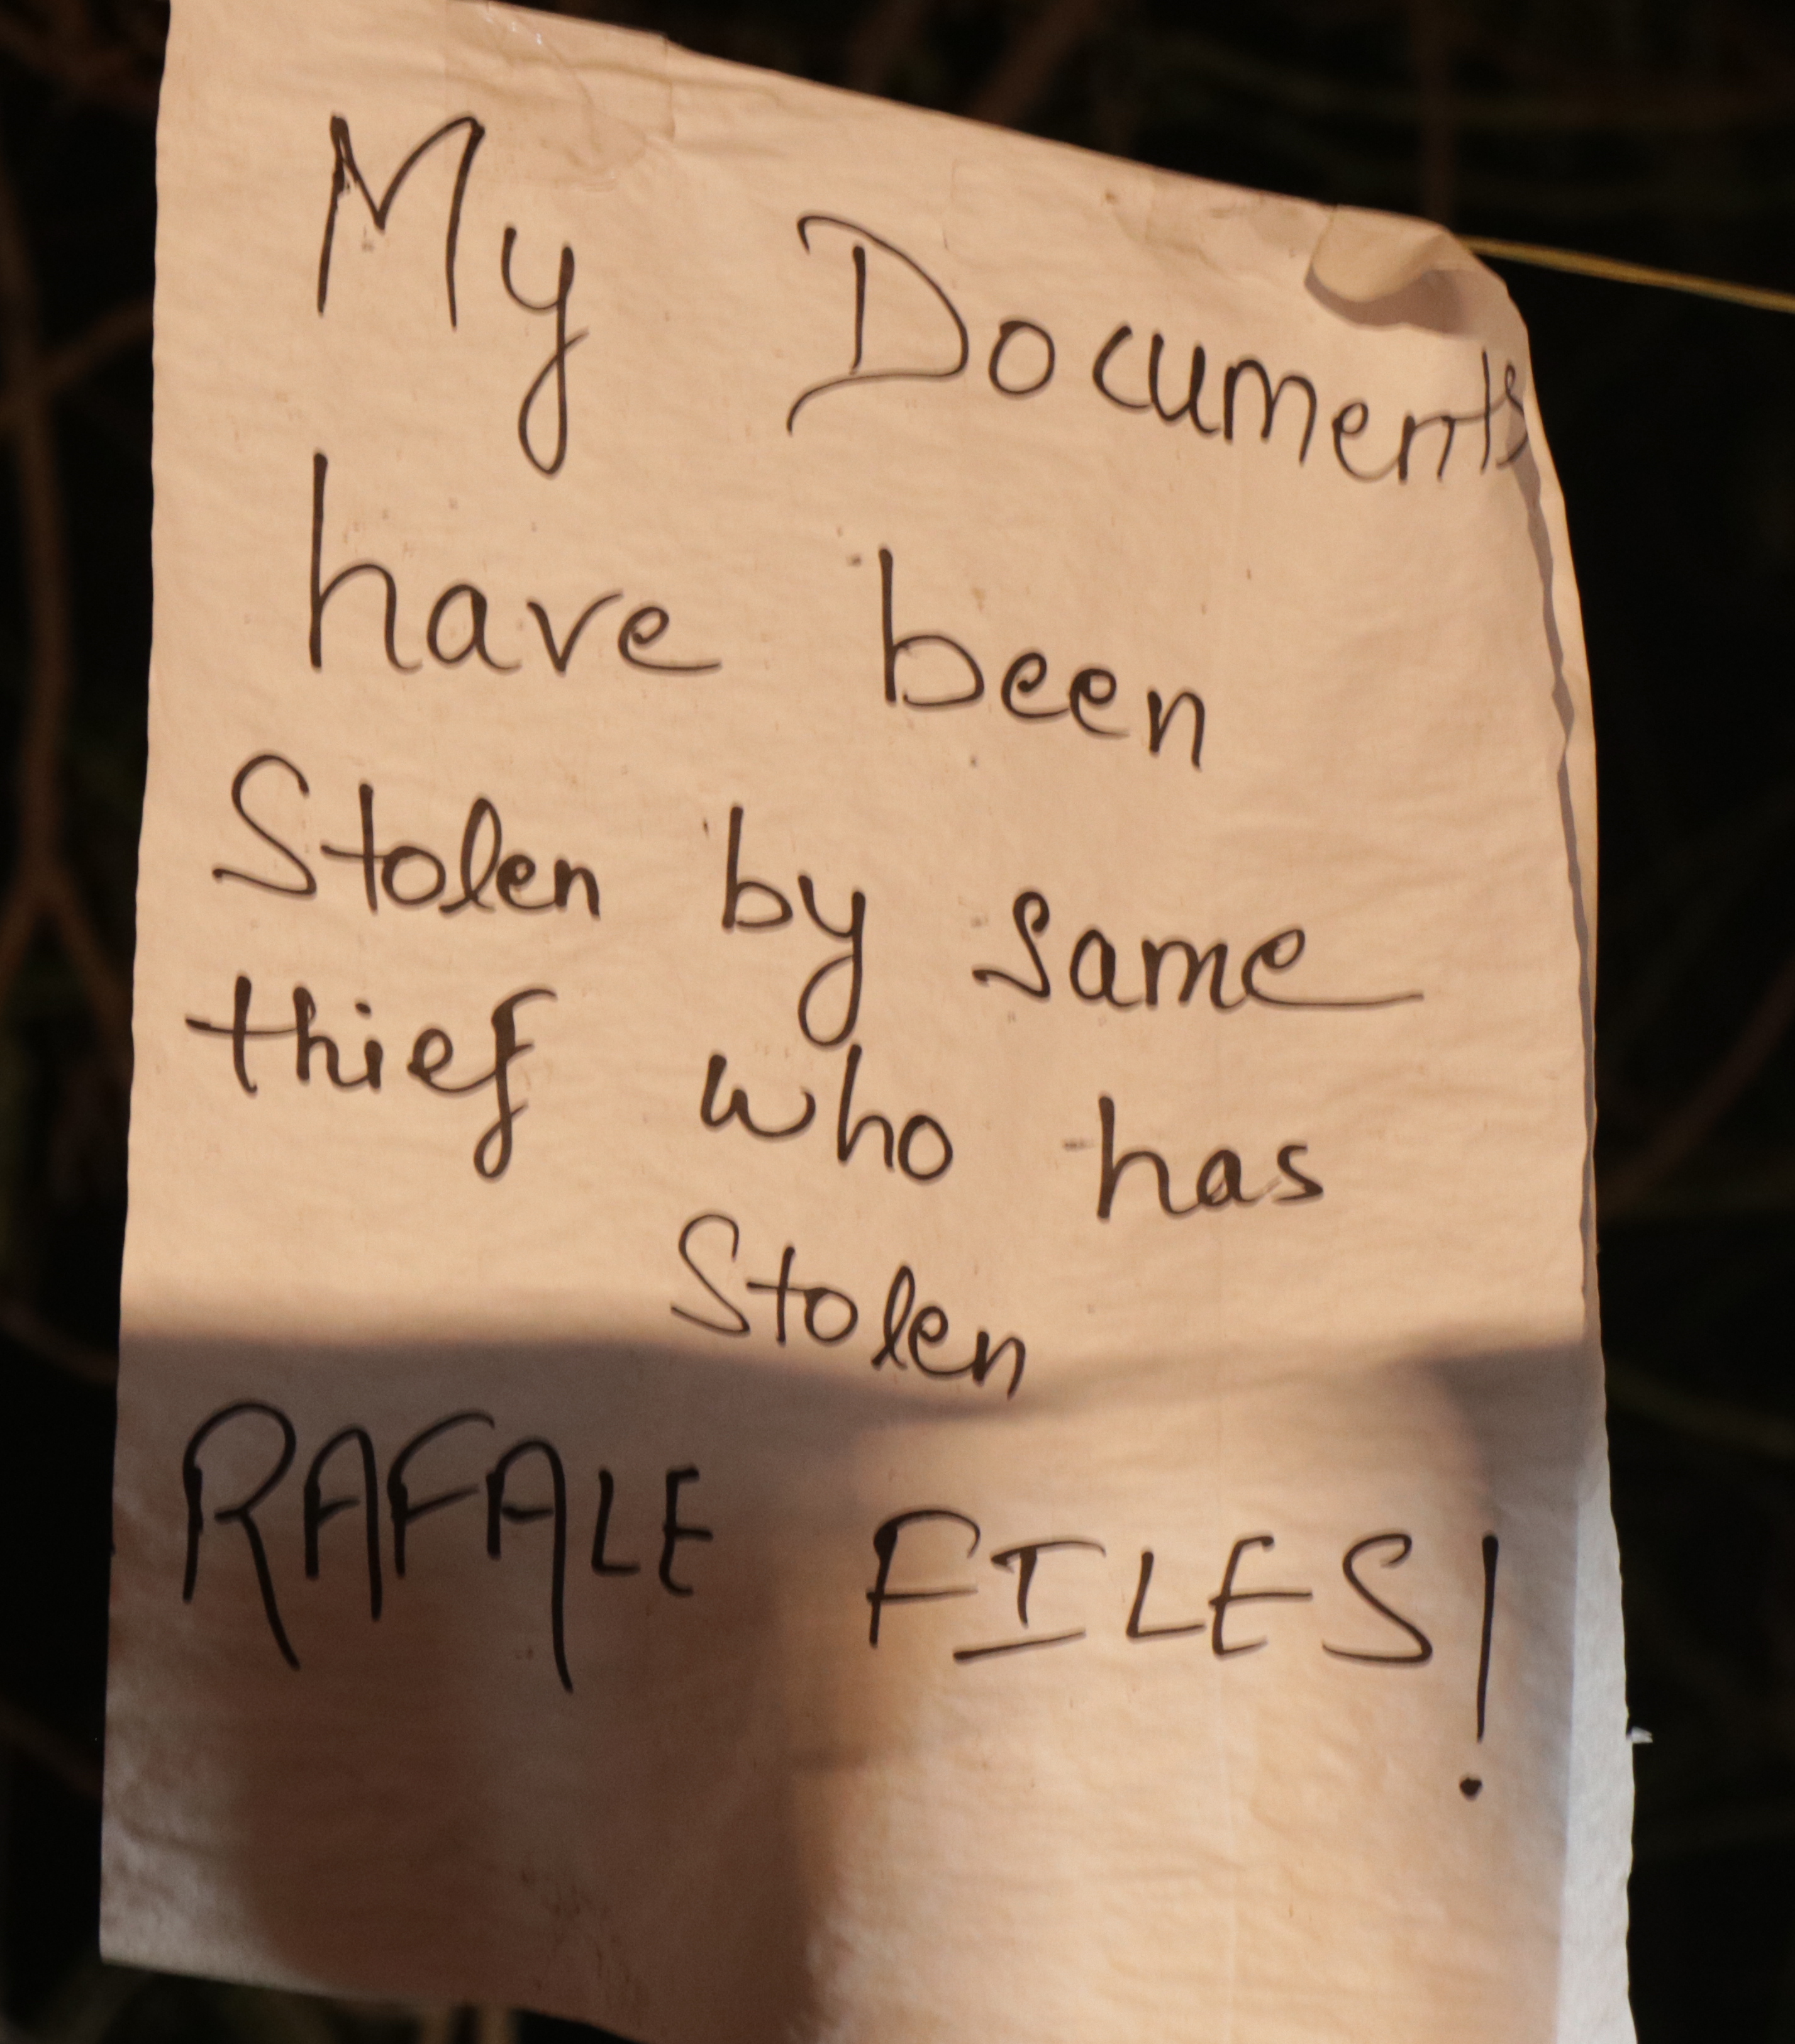 My Documents
have been
Stolen by same
thief who has
Stolen
RAFALE FILES!